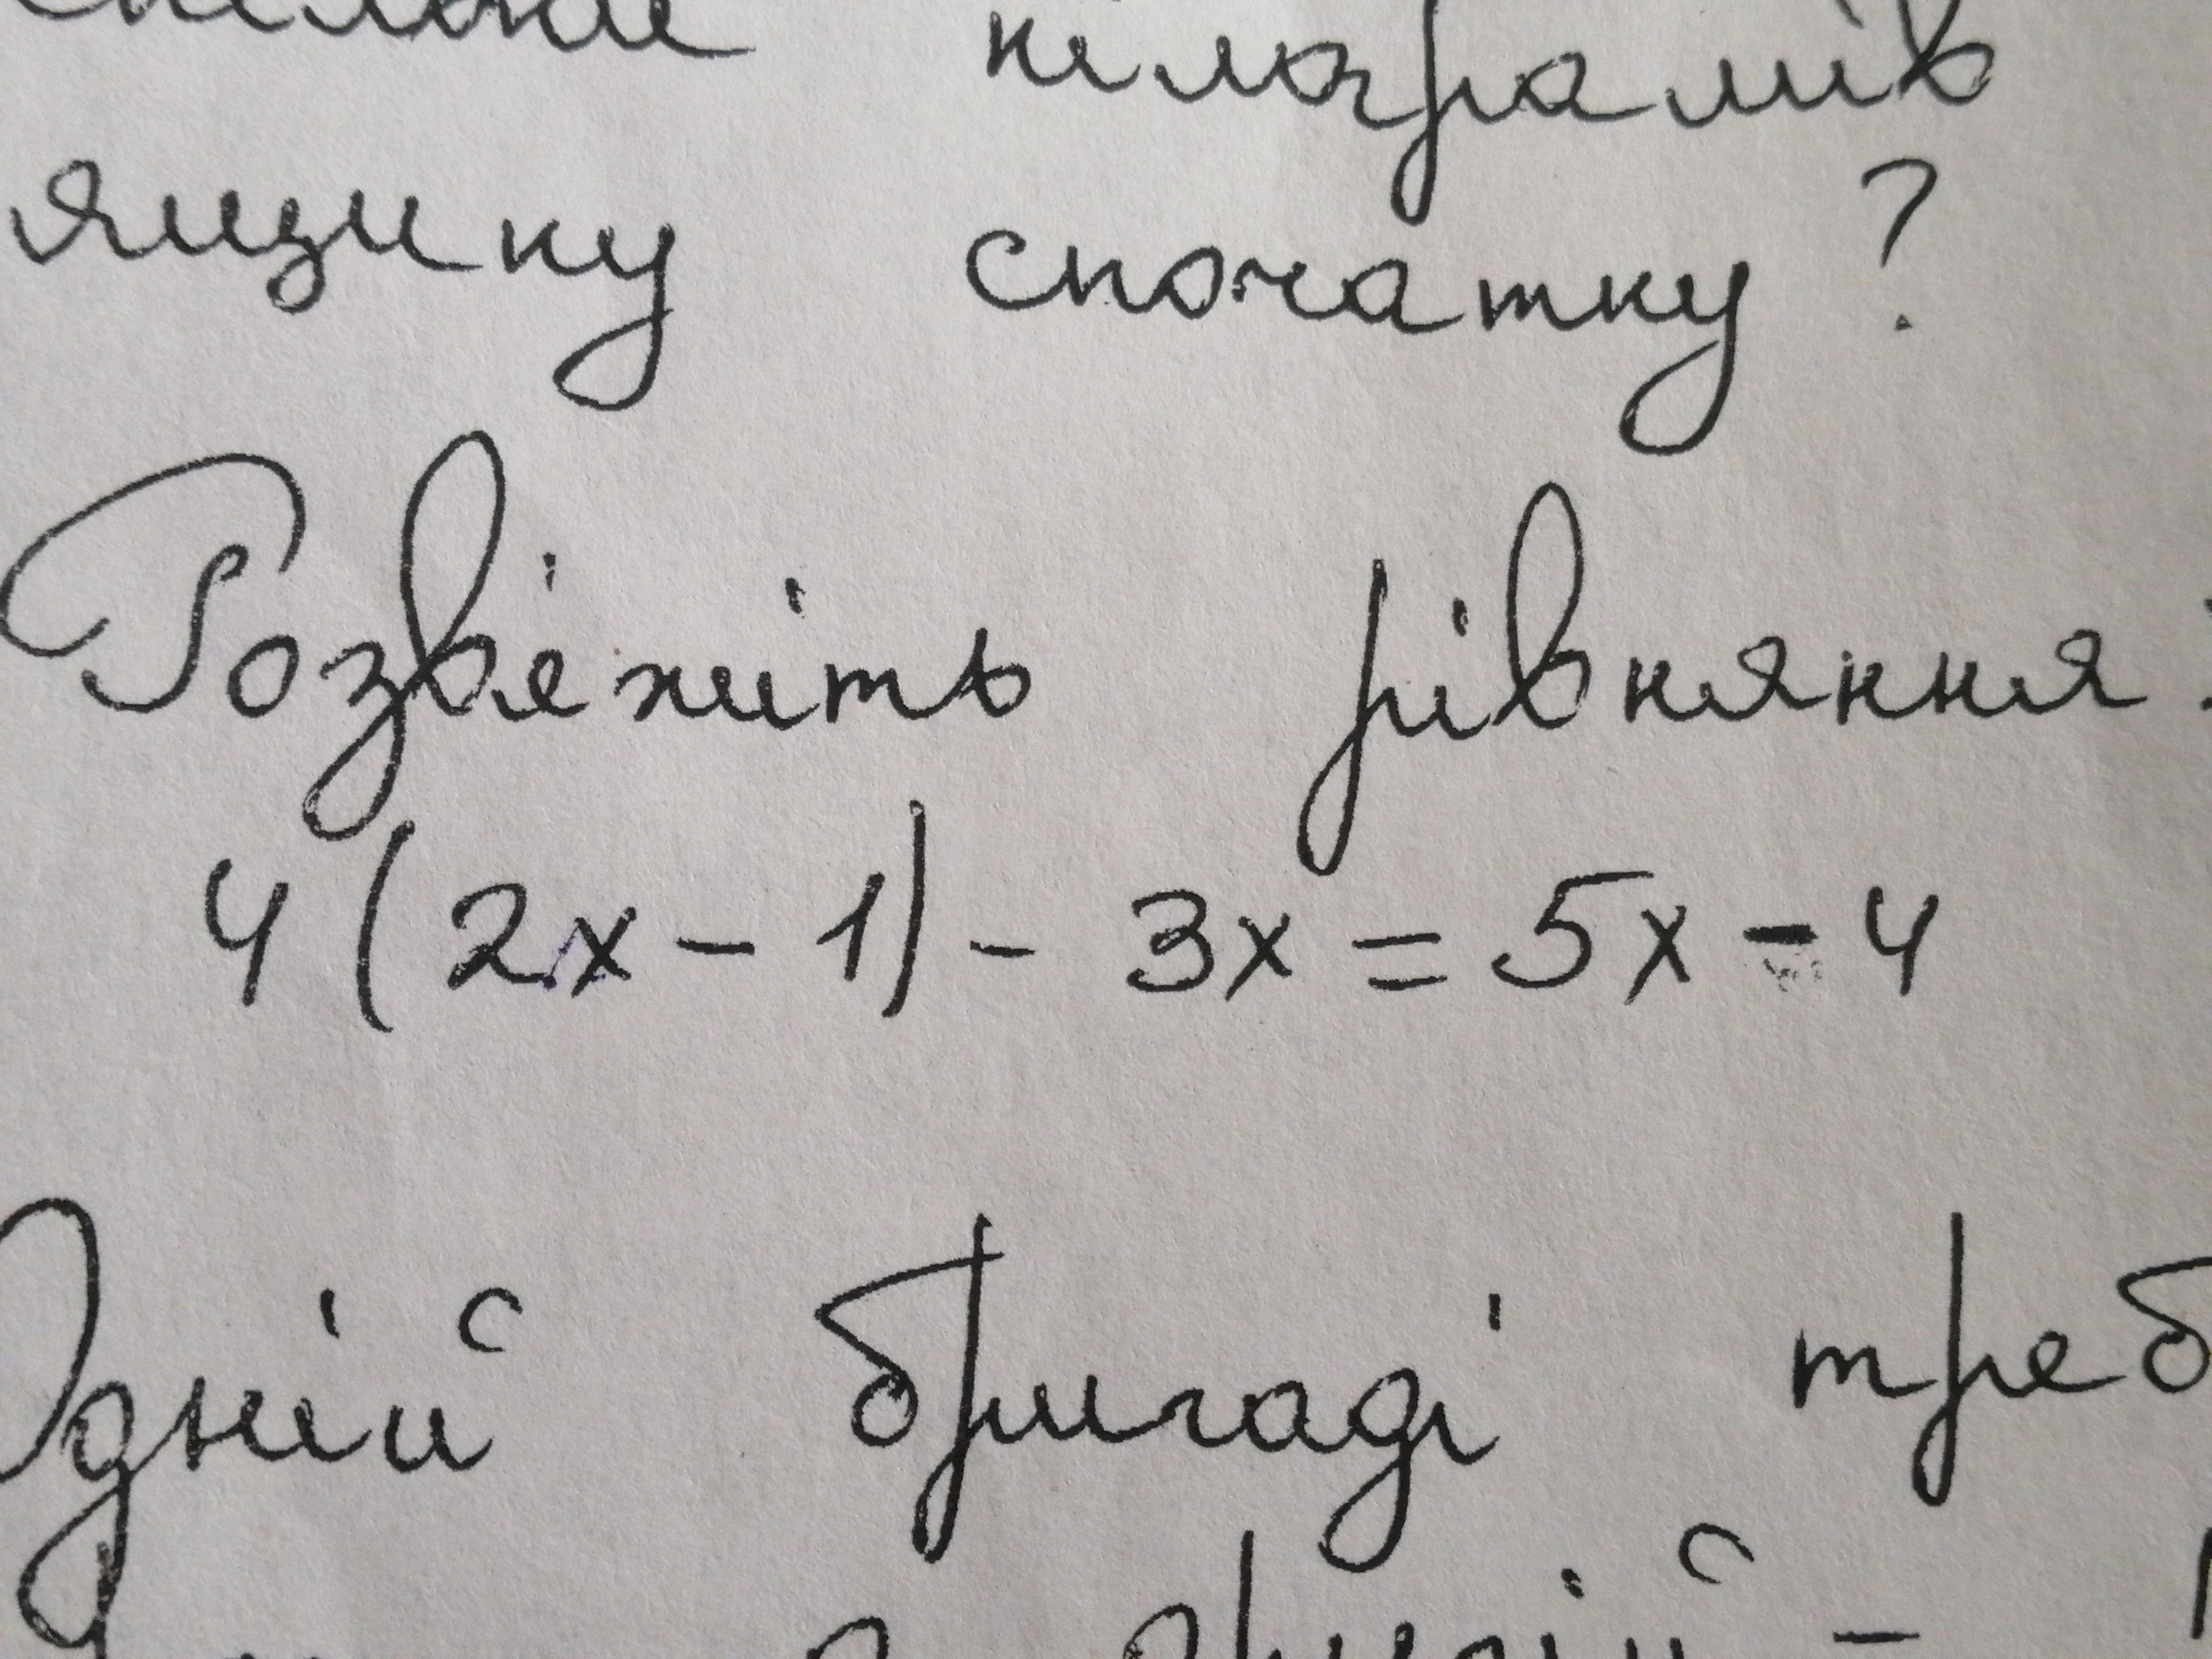 кілограмів
ящику спочатку?
Розв'яжіть рівняння:
4(2x - 1) - 3x = 5x - 4
Одній бригаді
другій -